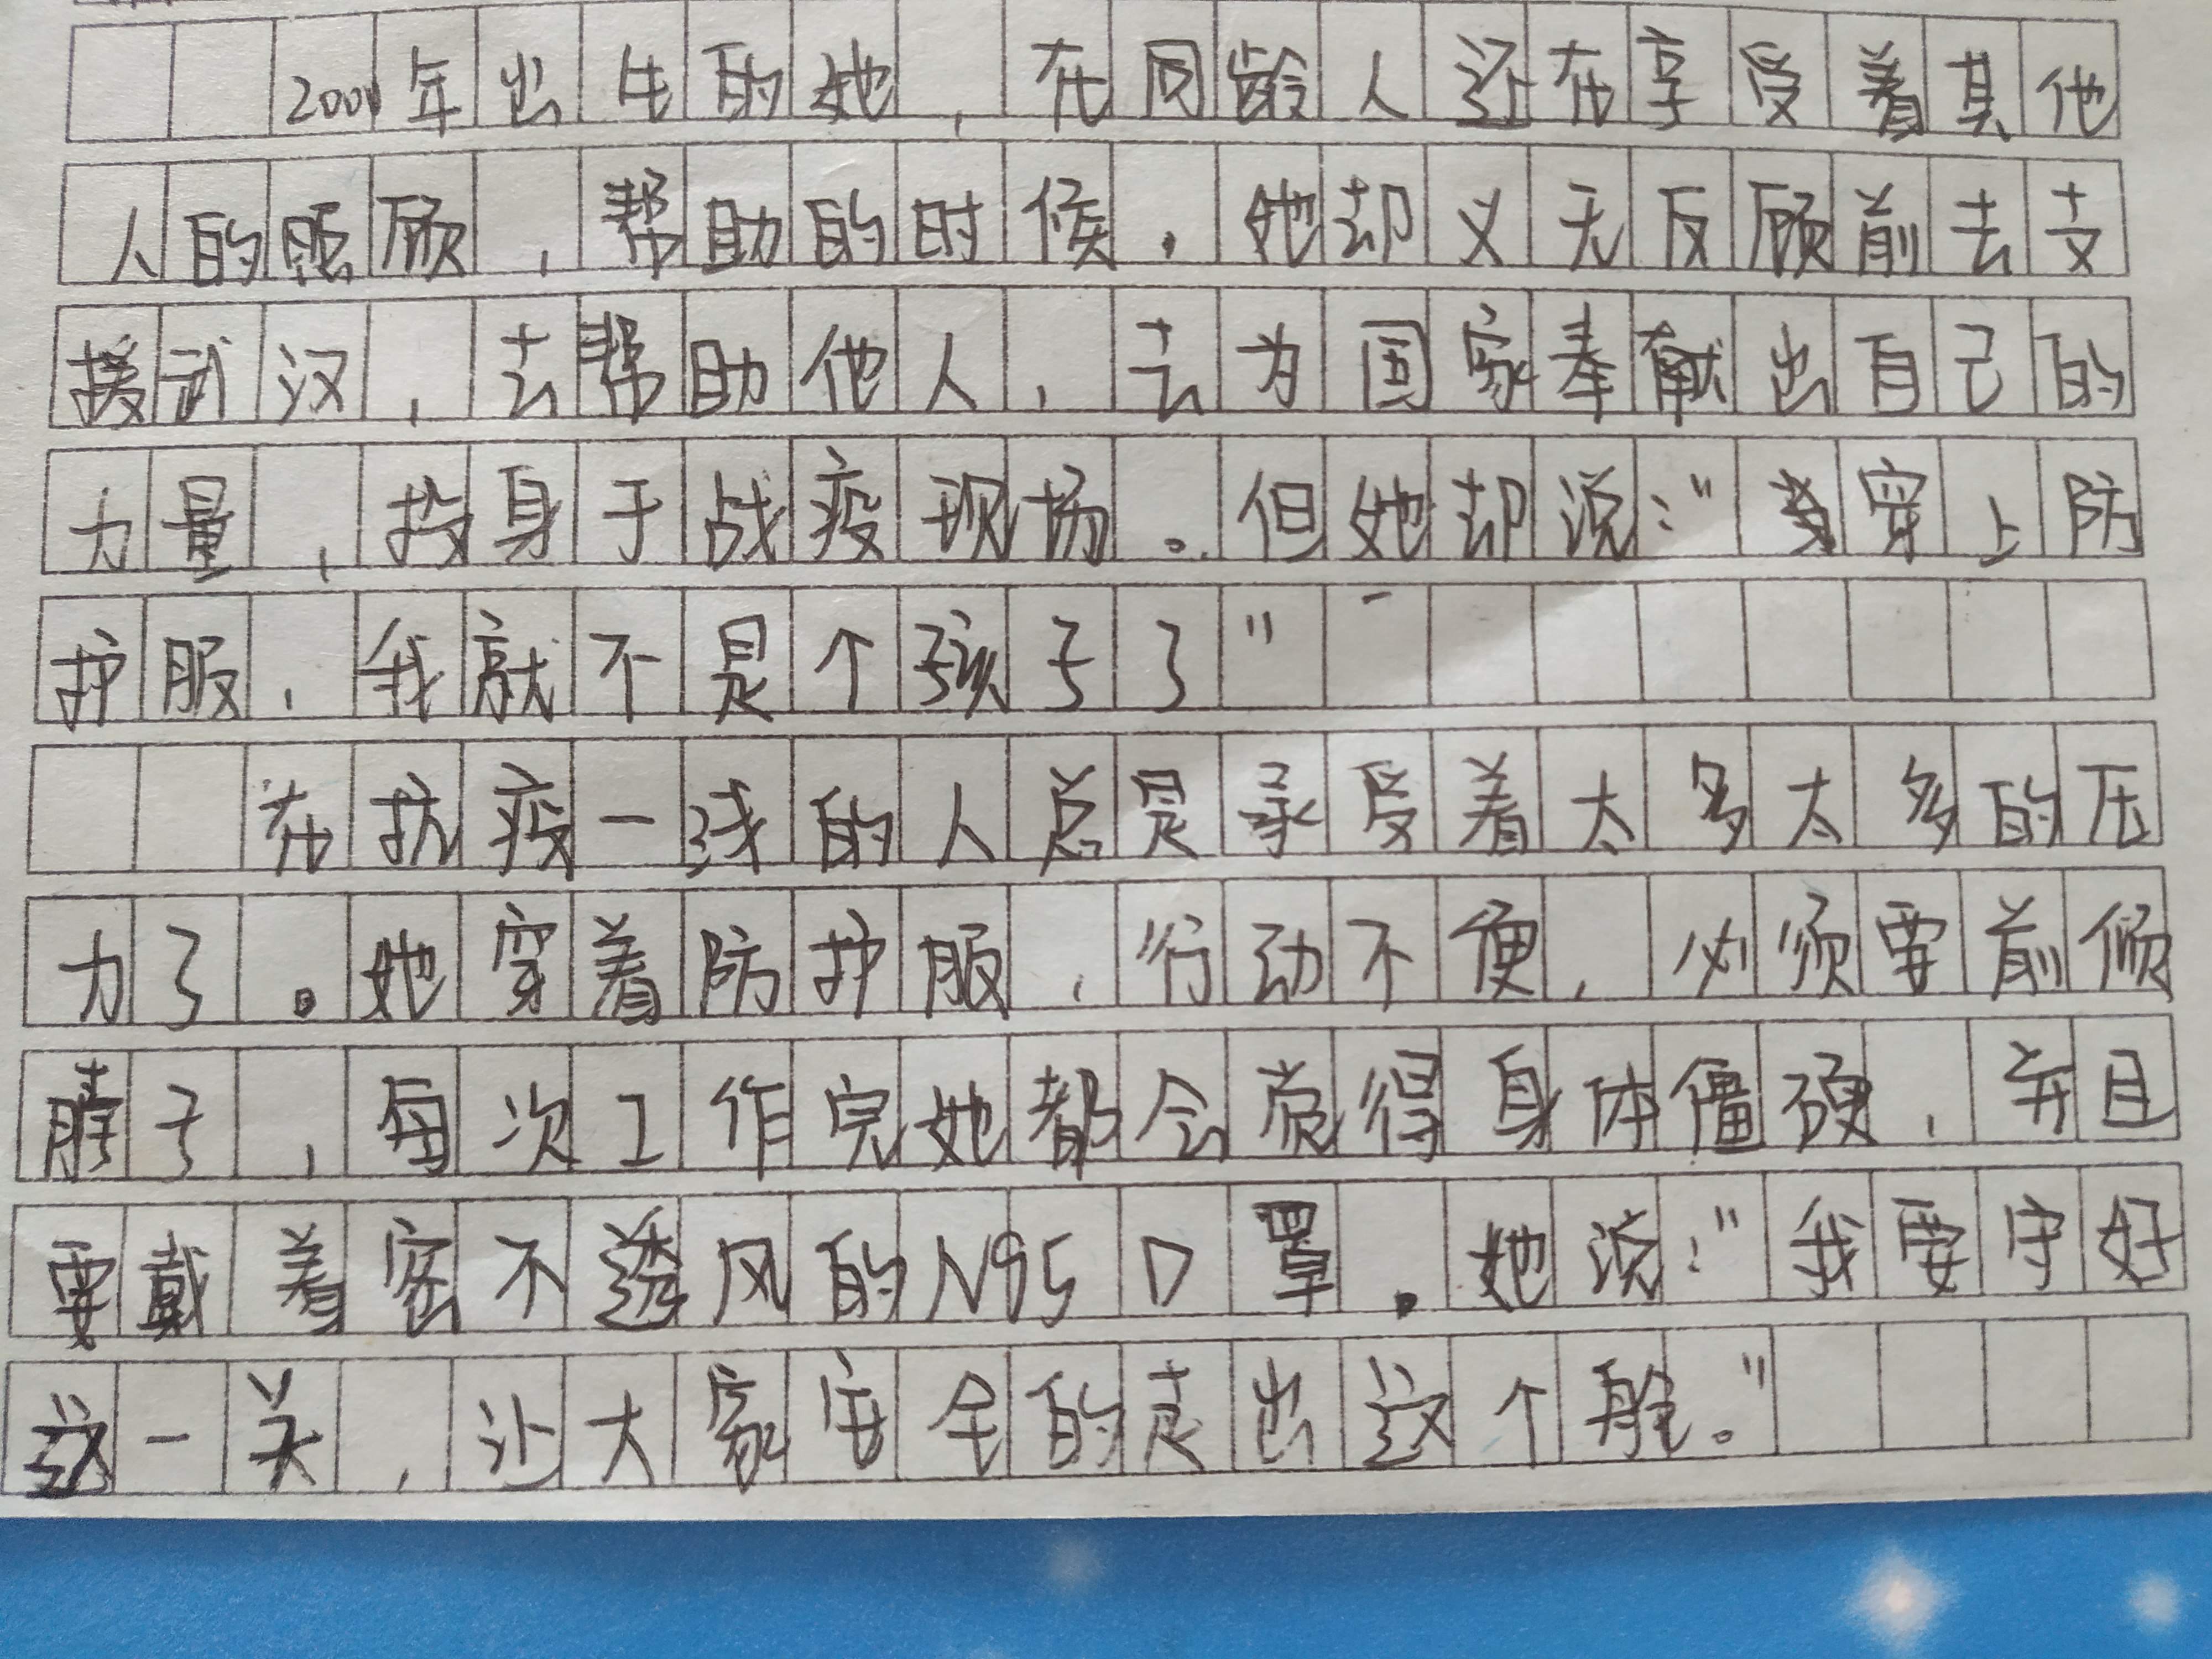 2000年出生的她，在同龄人还在享受着其他
人的照顾，帮助的时候，她却义无反顾前去支
援武汉，去帮助他人，去为国家奉献出自己的
力量，投身于战疫现场。但她却说：“穿上防
护服，我就不是个孩子了”
在抗疫一线的人总是承受着太多太多的压
力了。她穿着防护服，行动不便，必须要前倾
脖子，每次工作完她都会觉得身体僵硬，并且
要戴着密不透风的N95口罩。她说：“我要守好
这一关，让大家安全的走出这个舱。”